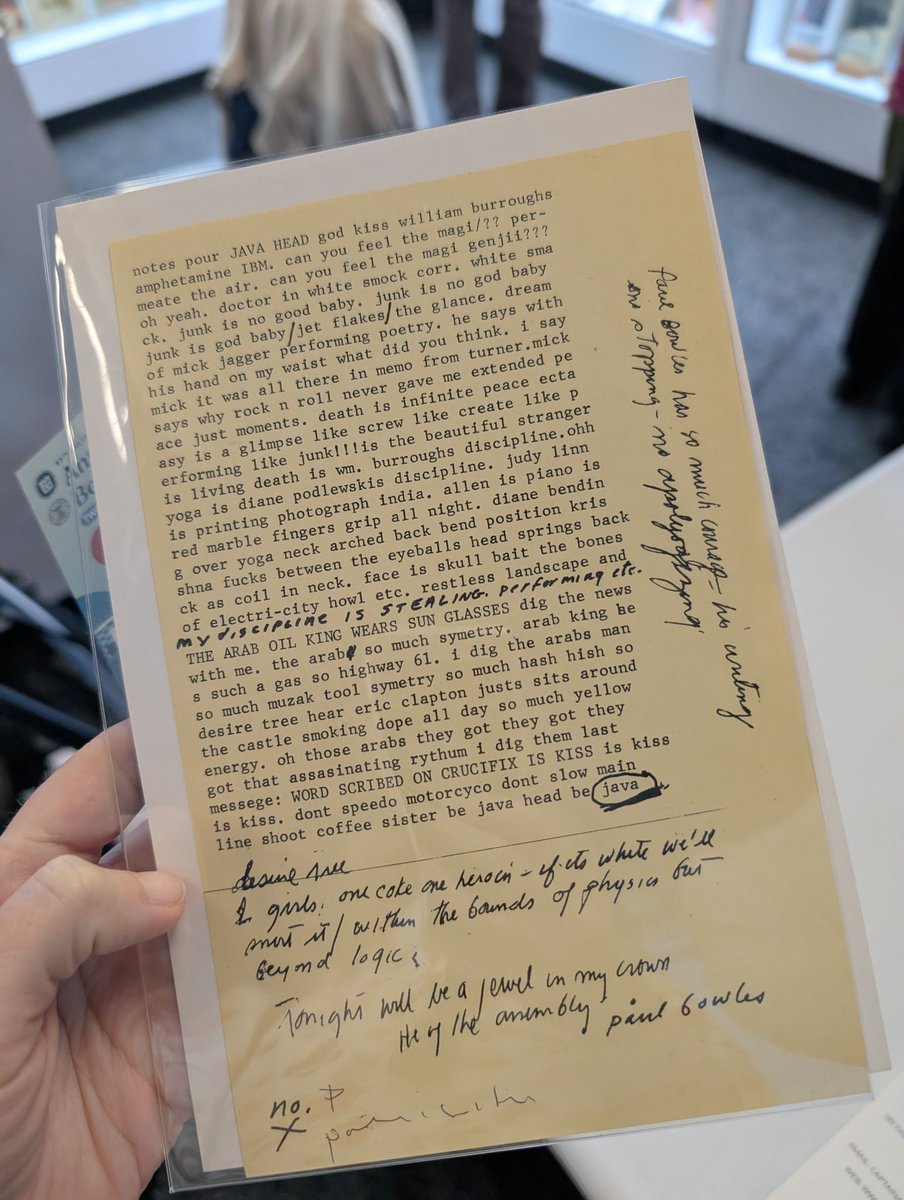 notes pour JAVA HEAD god kiss william burroughs
amphetamine IBM. can you feel the magi/?? per-
meate the air. can you feel the magi genjii???
oh yeah. doctor in white smock corr. white sma
ck. junk is no good baby. junk is no god baby
junk is god baby/jet flakes/the glance. dream
of mick jagger performing poetry. he says with
his hand on my waist what did you think. i say
mick it was all there in memo from turner.mick
says why rock n roll never gave me extended pe
ace just moments. death is infinite peace ecta
asy is a glimpse like screw like create like p
erforming like junk!!!is the beautiful stranger
is living death is wm. burroughs discipline.ohh
yoga is diane podlewskis discipline. judy linn
is printing photograph india. allen is piano is
red marble fingers grip all night. diane bendin
g over yoga neck arched back bend position kris
shna fucks between the eyeballs head springs back
ck as coil in neck. face is skull bait the bones
of electri-city howl etc. restless landscape and
my discipline is STEALING. performing etc.
THE ARAB OIL KING WEARS SUN GLASSES dig the news
with me. the arab so much symetry. arab king he
s such a gas so highway 61. i dig the arabs man
so much muzak tool symetry so much hash hish so
desire tree hear eric clapton justs sits around
the castle smoking dope all day so much yellow
energy. oh those arabs they got they got they
got that assasinating rythum i dig them last
messege: WORD SCRIBED ON CRUCIFIX IS KISS is kiss
is kiss. dont speedo motorcyco dont slow main
line shoot coffee sister be java head be java
desire tree
2 girls. one coke one heroin - if its white we'll
snort it/within the bounds of physics but
beyond logic
Tonight will be a jewel in my crown
He of the assembly paul bowles
no.
X
Paul Bowles has so much courage - his writing
no stopping - no apologizing